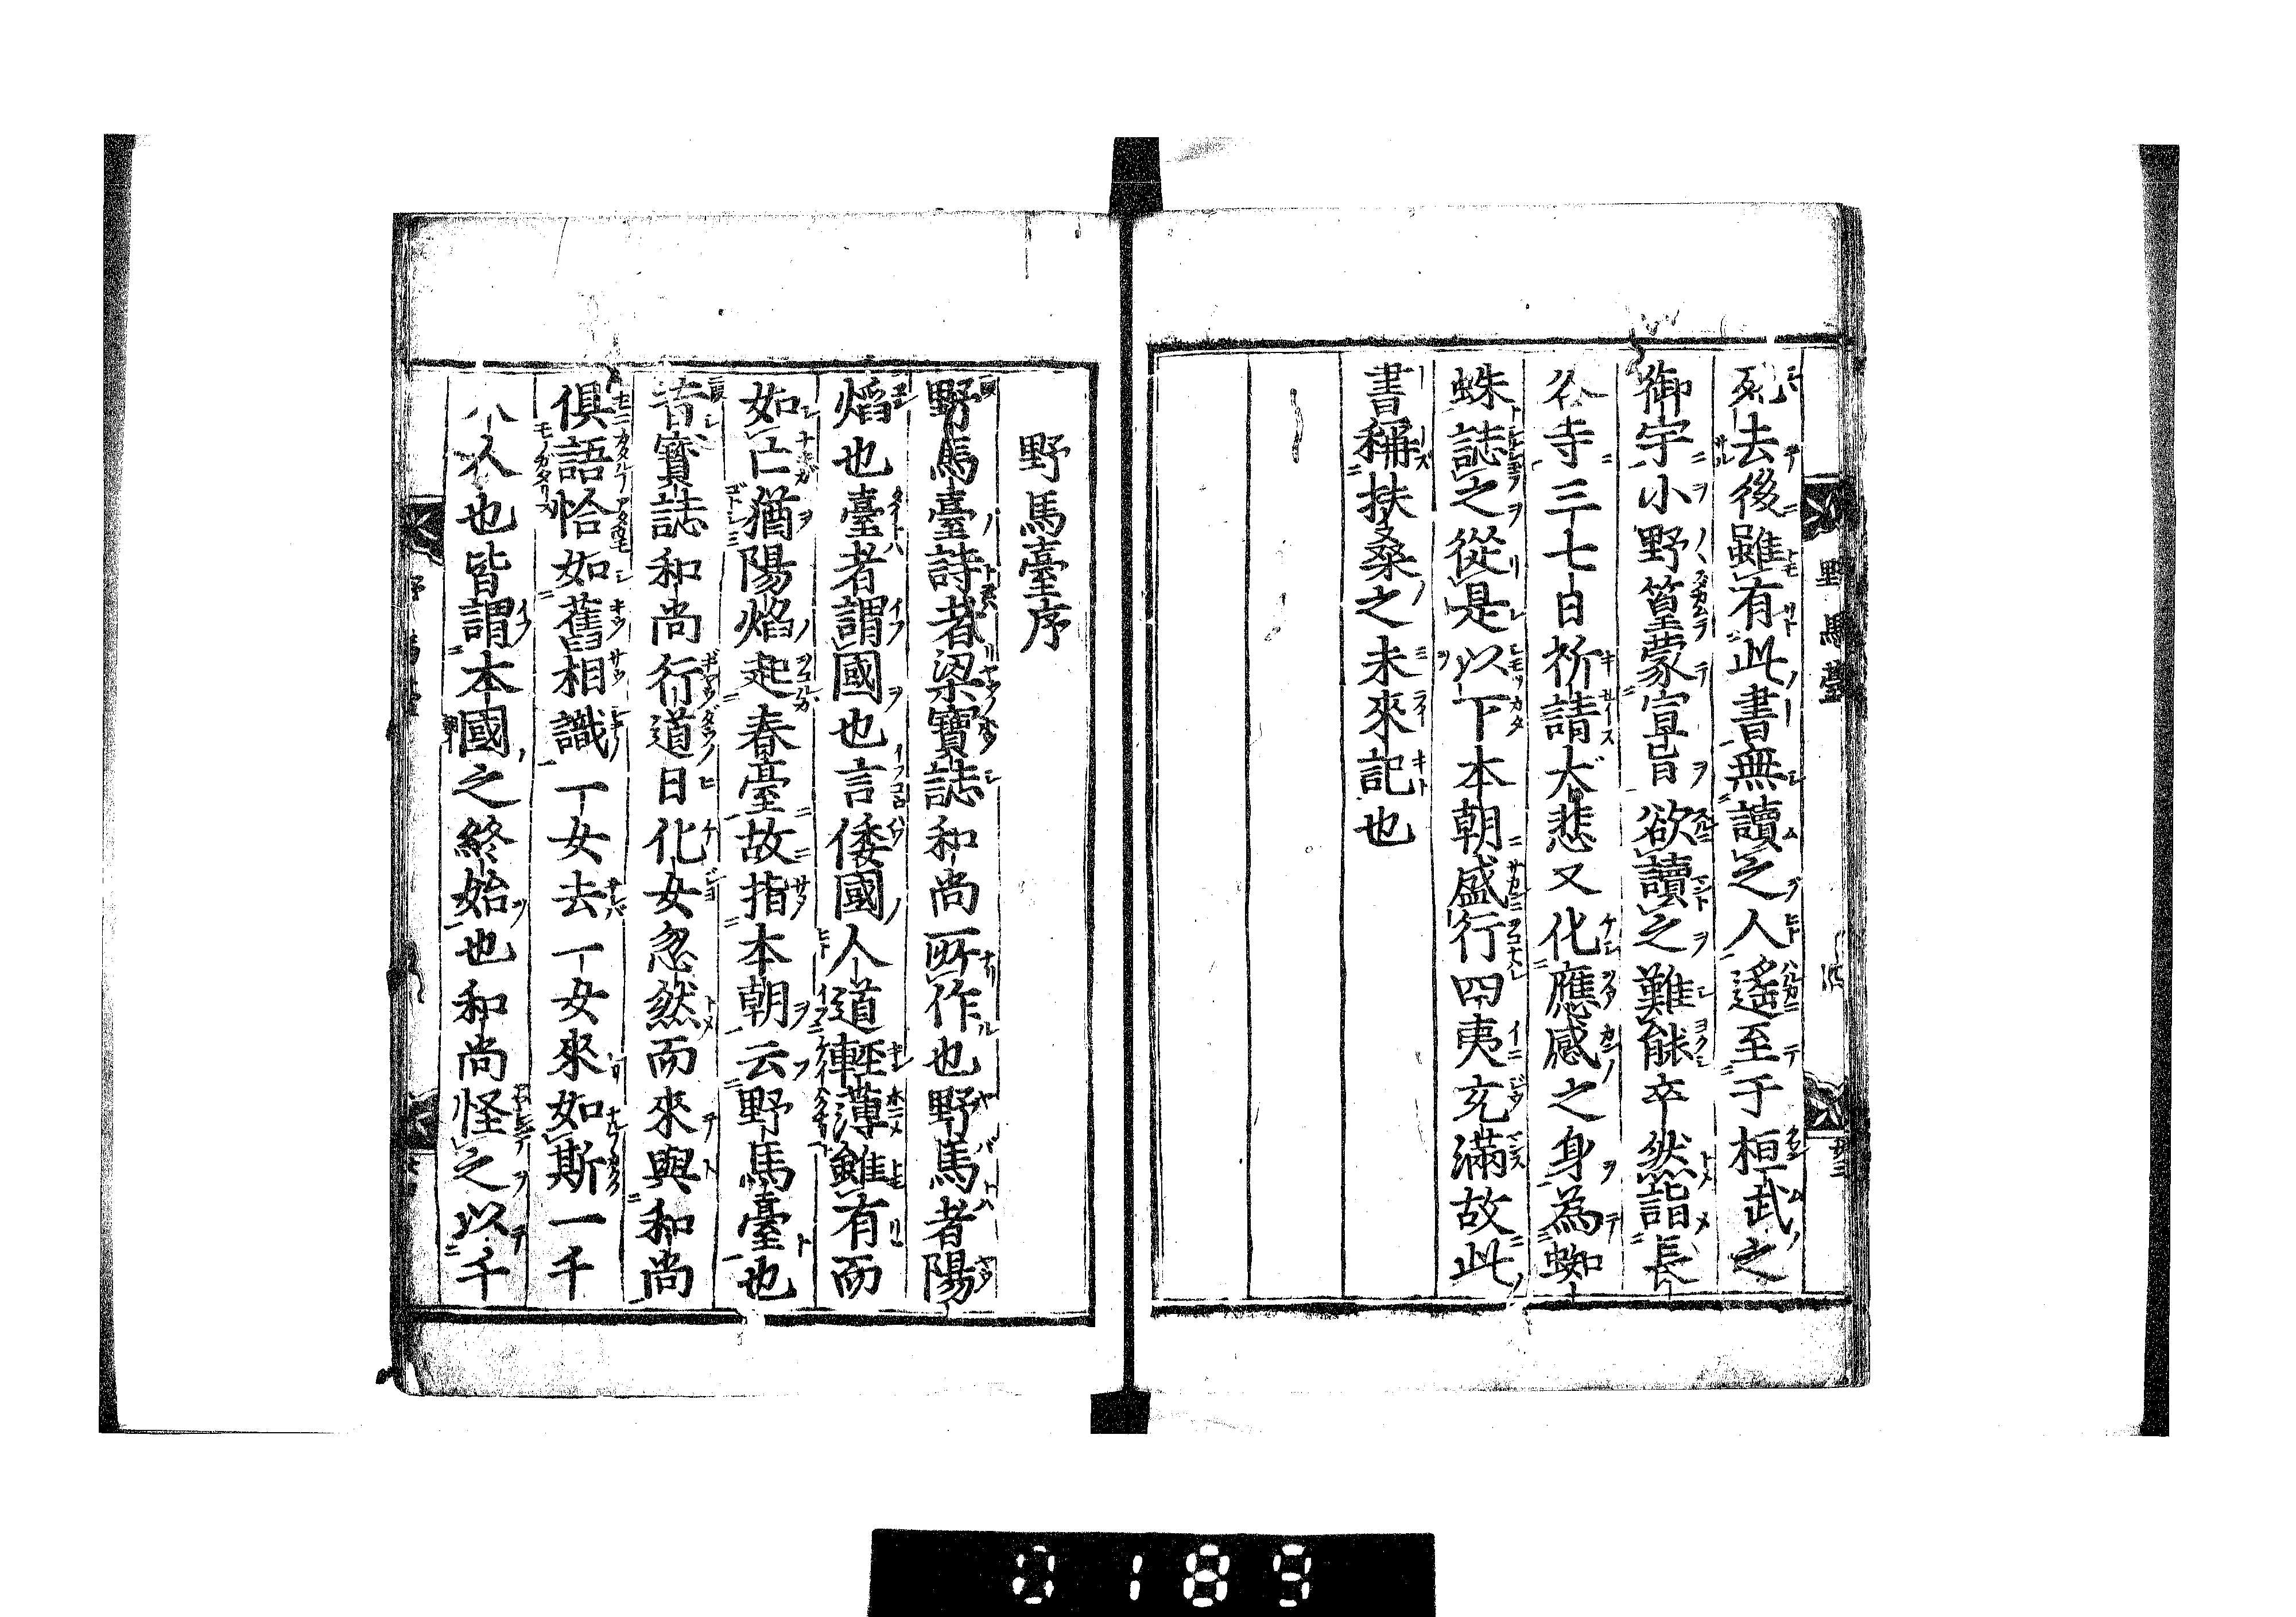 死去後雖有此書無讀之人遙至于桓武之
御宇小野篁蒙宣旨欲讀之難能卒然詣長
谷寺三七日祈請大悲又化應感之身為蜘
蛛誌之從是以下本朝盛行四夷充滿故此
書稱扶桑之未來記也
野馬臺
野馬臺序
野馬臺詩者梁寶誌和尚所作也野馬者陽
焰也臺者謂國也言倭國人道輕薄雖有而
如亡猶陽焰起春臺故指本朝云野馬臺也
昔寶誌和尚行道日化女忽然而來與和尚
俱語恰如舊相識一女去一女來如斯一千
八人也皆謂本國之終始也和尚怪之以千
0189